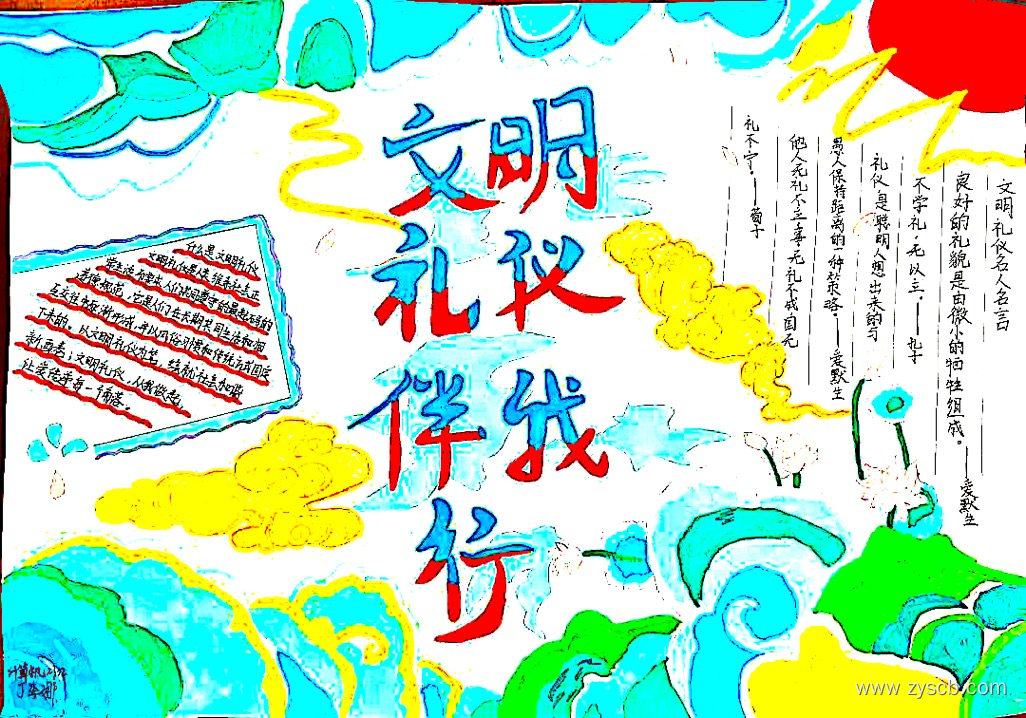 文明
礼仪
伴我
行
文明礼仪名人名言
良好的礼貌是由微小的牺牲组成。——爱默生
不学礼,无以立。——孔子
礼仪是聪明人想出来的与
愚人保持距离的一种策略。——爱默生
他人无礼不立,事无礼不成,国无
礼不宁。——荀子
什么是文明礼仪
文明礼仪是人类维系社会正
常生活而要求人们共同遵守的最起码的
道德规范,它是人们在长期共同生活和相
互交往中逐渐形成,并以风俗习惯和传统方式固定
下来的。以文明礼仪为笔,绘就社会和谐
新画卷;文明礼仪,从我做起,
让爱传递每一个角落。
计算机
www.zyscb.com